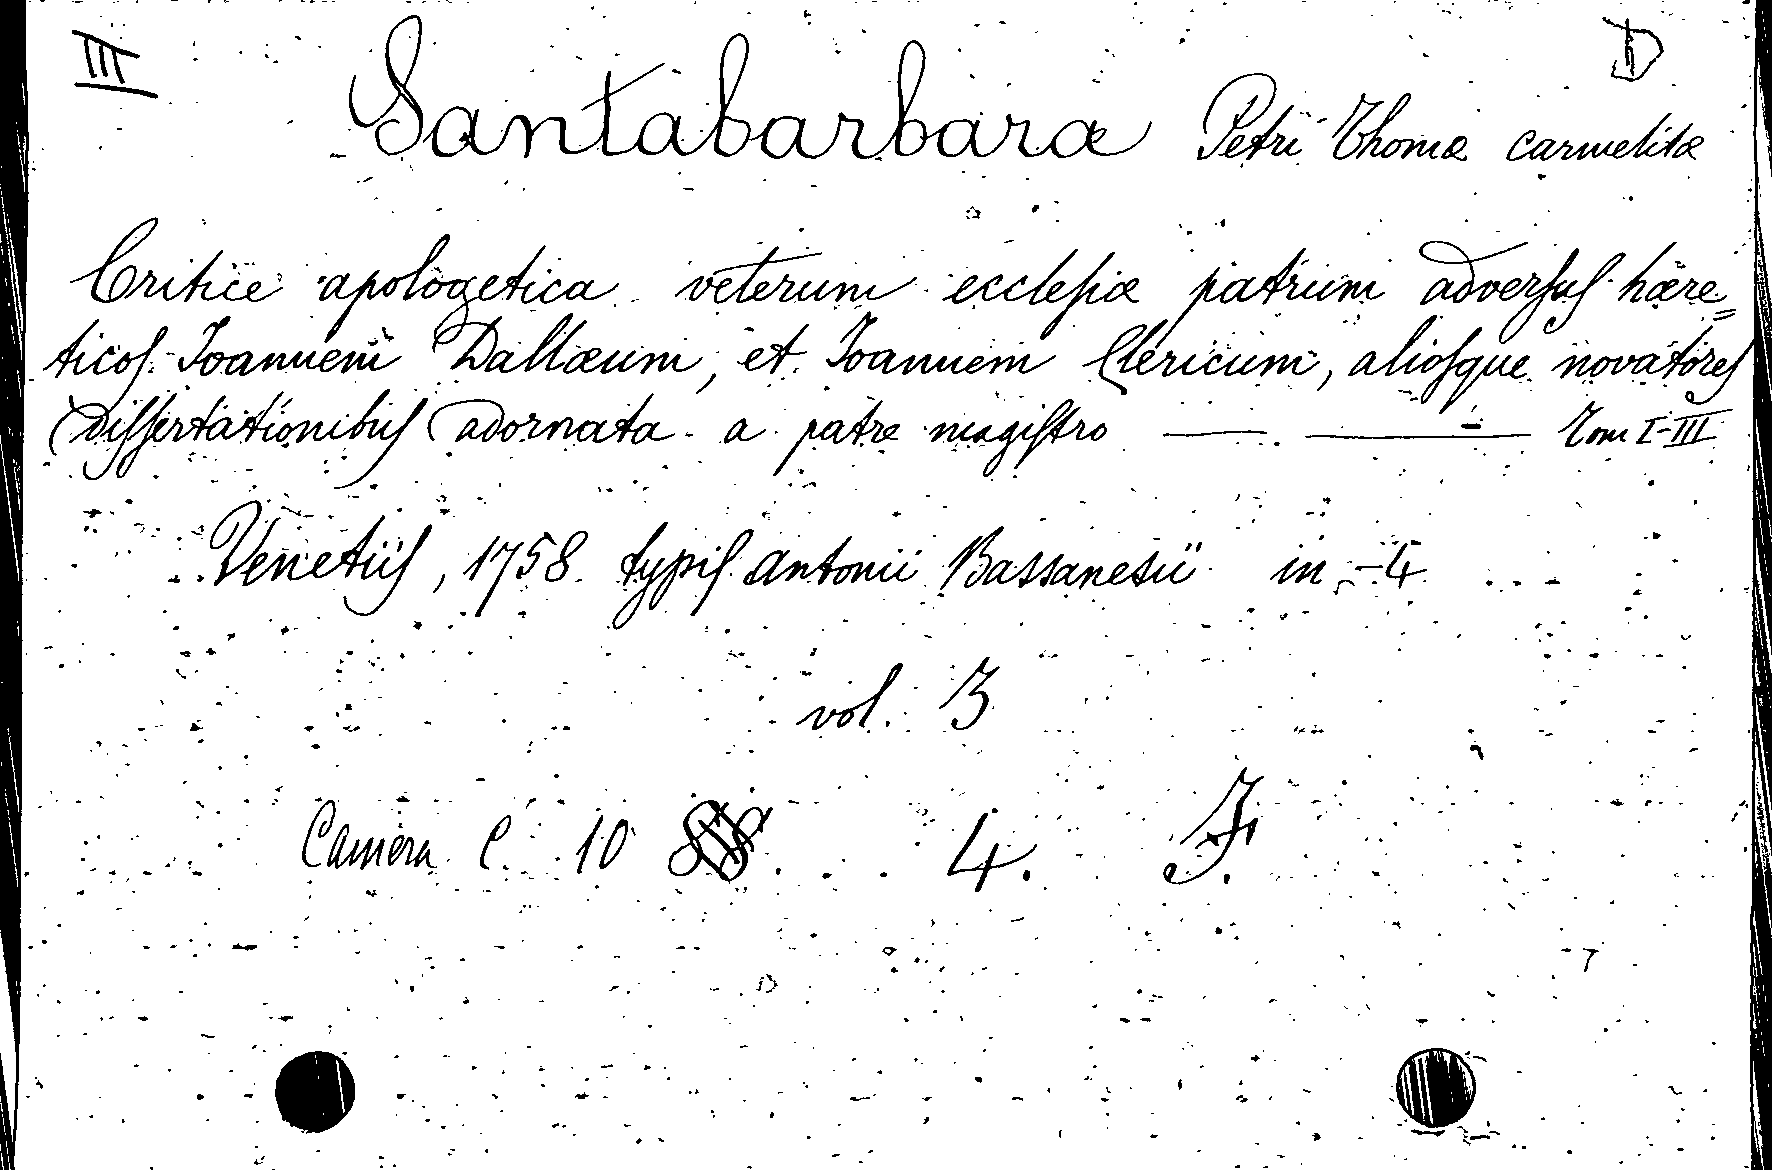 III D
Santabarbara Petri Thomæ carmelitæ
Critice apologetica veterum ecclesiæ patrum adversus hære=
ticos Ioannem Dallæum, et Ioannem Clericum, aliosque novatores
dissertationibus adornata a patre magistro — . — Tom I-III
Venetiis, 1758 typis Antonii Bassanesii in-4
vol. 3
Camera C 10 4. F.